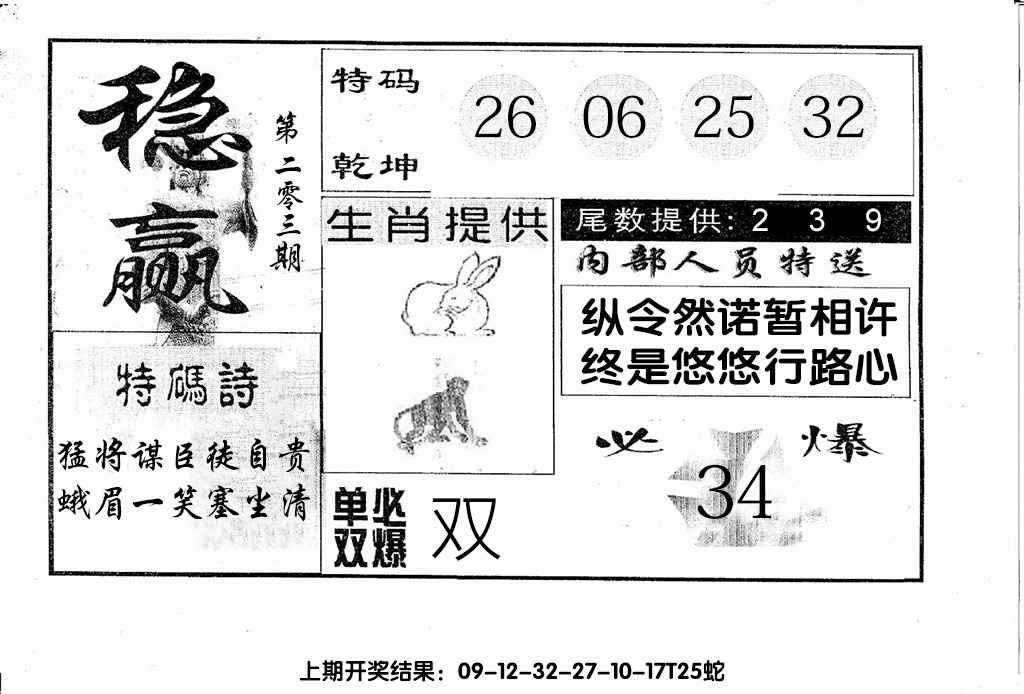 稳赢
第二零三期
特码
乾坤
26 06 25 32
生肖提供
尾数提供: 2 3 9
内部人员特送
纵令然诺暂相许
终是悠悠行路心
特碼詩
猛将谋臣徒自贵
蛾眉一笑塞尘清
单双
必爆
双
必爆
34
上期开奖结果：09-12-32-27-10-17T25蛇